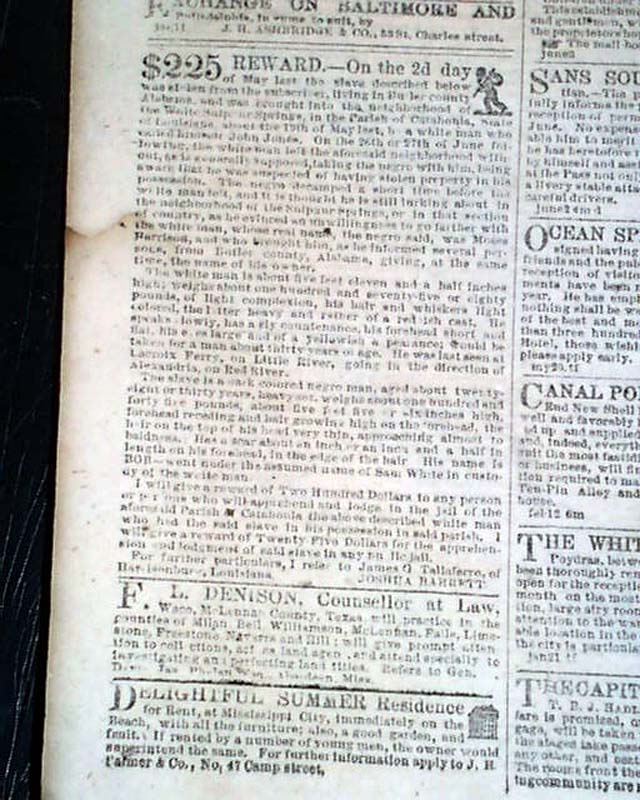 EXCHANGE ON BALTIMORE AND
J. H. ASHBRIDGE & CO., Charles street.
$225 REWARD.—On the 2d day
of May last the slave described below
was stolen from the subscriber, living in Butler county
Alabama, and was brought into the neighborhood of
the White Sulphur Springs, in the Parish of Catahoula,
of Louisiana, about the 19th of May last, by a white man who
called himself John Jones. On the 26th or 27th of June fol-
lowing, the white man left the aforesaid neighborhood with-
out, as is generally supposed, taking the negro with him, being
aware that he was suspected of having stolen property in his
possession. The negro decamped a short time before the
white man left, and it is thought he is still lurking about in
the neighborhood of the Sulphur Springs, or in that section
of country, as he evinced an unwillingness to go farther with
the white man, whose real name, the negro said, was Moses
Harrison, and who brought him, as he informed several per-
sons, from Butler county, Alabama, giving, at the same
time, the name of his owner.
The white man is about five feet eleven and a half inches
high; weighs about one hundred and seventy-five or eighty
pounds, of light complexion, his hair and whiskers light
colored, the latter heavy and rather of a reddish cast. He
speaks slowly, has a sly countenance, his forehead short and
flat, his eyes large and of a yellowish appearance; would be
taken for a man about thirty years of age. He was last seen at
Lacroix Ferry, on Little River, going in the direction of
Alexandria, on Red River.
The slave is a dark colored negro man, aged about twenty-
eight or thirty years, heavy set, weighs about one hundred and
forty five pounds, about five feet five or six inches high,
forehead receding and hair growing high on the forehead, the
hair on the top of his head very thin, approaching almost to
baldness. Has a scar about an inch or an inch and a half in
length on his forehead, in the edge of the hair. His name is
BOB—went under the assumed name of Sam White in custo-
dy of the white man.
I will give a reward of Two Hundred Dollars to any person
or persons who will apprehend and lodge in the jail of the
aforesaid Parish of Catahoula the above described white man
who had the said slave in his possession in said parish. I
will give a reward of Twenty-Five Dollars for the apprehen-
sion and lodgment of said slave in any
For further particulars, I refer to James G. Taliaferro, of
Harrisonburg, Louisiana. JOSHUA BARRETT
F. L. DENISON, Counsellor at Law,
Waco, McLennan County, Texas, will practice in the
counties of Milan, Bell, Williamson, McLennan, Falls, Lime-
stone, Freestone, Navarro and Hill; will give prompt atten-
tion to collections, act as land agent, and attend specially to
investigating and perfecting land titles. Refers to Gen.
Aberdeen, Miss.
DELIGHTFUL SUMMER Residence
for Rent, at Mississippi City, immediately on the
Beach, with all the furniture; also, a good garden, and
fruit. If rented by a number of young men, the owner would
superintend the same. For further information apply to J. H.
Palmer & Co., No. 47 Camp street,
SANS SOU
OCEAN SP
signed having
friends and the pub
reception of visit
ments have been
year. He has emp
nothing shall be w
of the best and mo
than three hundred
Hotel, those wishi
please apply early.
my20.tf
CANAL PO
End New Shell
well and favorably
ed up and supplied
and, indeed, everyth
suit the most fastidi
or business, will fi
tion required to ma
Ten-Pin Alley and
house.
fel12 6m
THE WHIT
Poydras, betwe
been thoroughly ren
open for the recepti
month on the most
tion, large airy room
attention to the wan
able location in the
the city is particular
jan21 tf
THE CAPIT
T. B. J. HADL
fare is promised, o
gage, will be taken
the stages take pass
any other, and
The rooms front th
ing community are